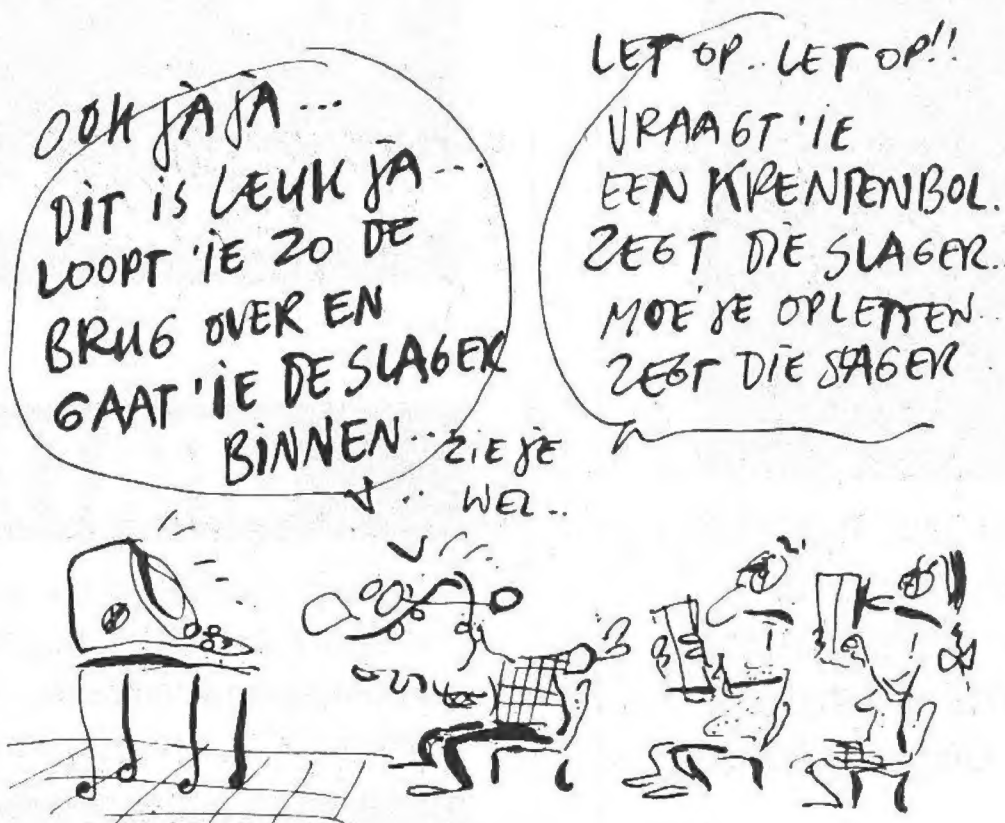 OOH JA JA ...
DIT IS LEUK JA ...
LOOPT 'IE ZO DE
BRUG OVER EN
GAAT 'IE DE SLAGER
BINNEN...
ZIE JE
WEL..
LET OP.. LET OP!!
VRAAGT 'IE
EEN KRENTENBOL.
ZEGT DIE SLAGER..
MOE JE OPLETTEN..
ZEGT DIE SLAGER